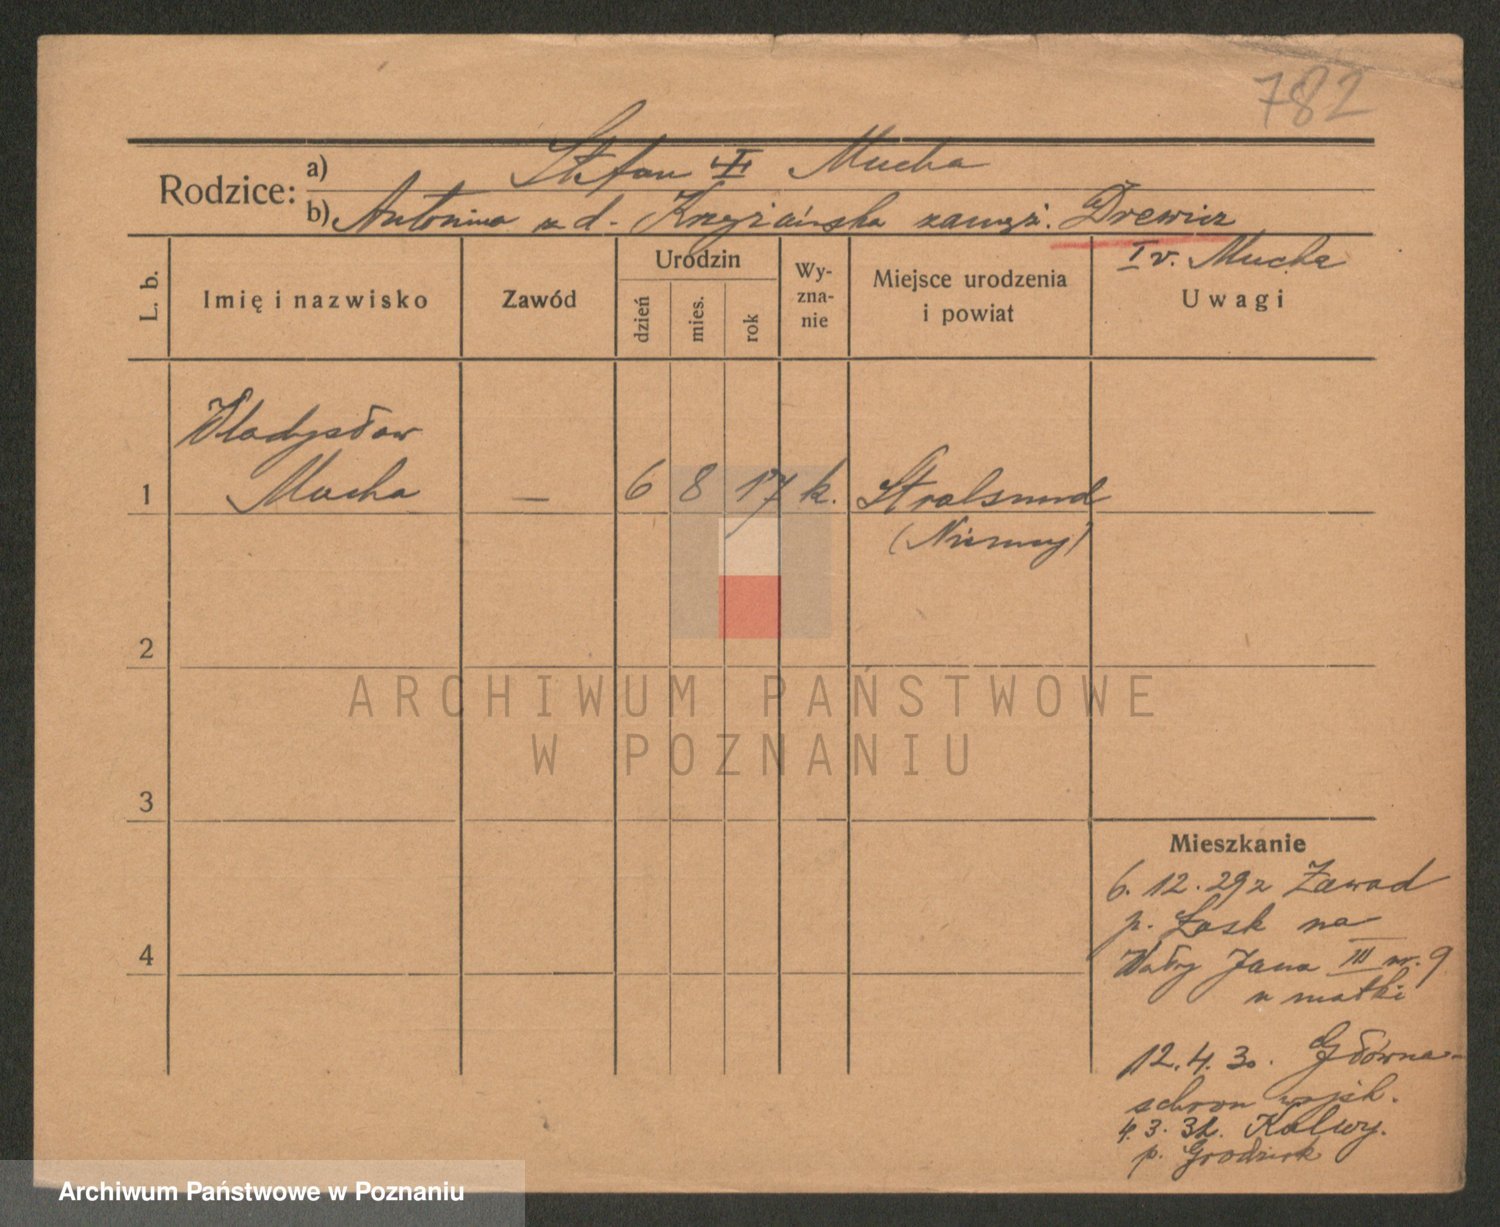 782
Rodzice:
a) Stefan Mucha
b) Antonina z d. Krzyżańska zamęż. Drewicz
I v. Mucha
L. b.
Imię i nazwisko
Zawód
Urodzin
dzień
mies.
rok
Wy-
zna-
nie
Miejsce urodzenia
i powiat
Uwagi
Władysław
1 Mucha — 6 8 17 k. Stralsund
(Niemcy)
2
3
4
ARCHIWUM PAŃSTWOWE
W POZNANIU
Mieszkanie
6. 12. 29 z Zawad
p. Łask na
Wały Jana III nr. 9
u matki
12. 4. 30. Główna-
schron wojsk.
4. 3. 31. Kalwy.
p. Grodzisk
Archiwum Państwowe w Poznaniu